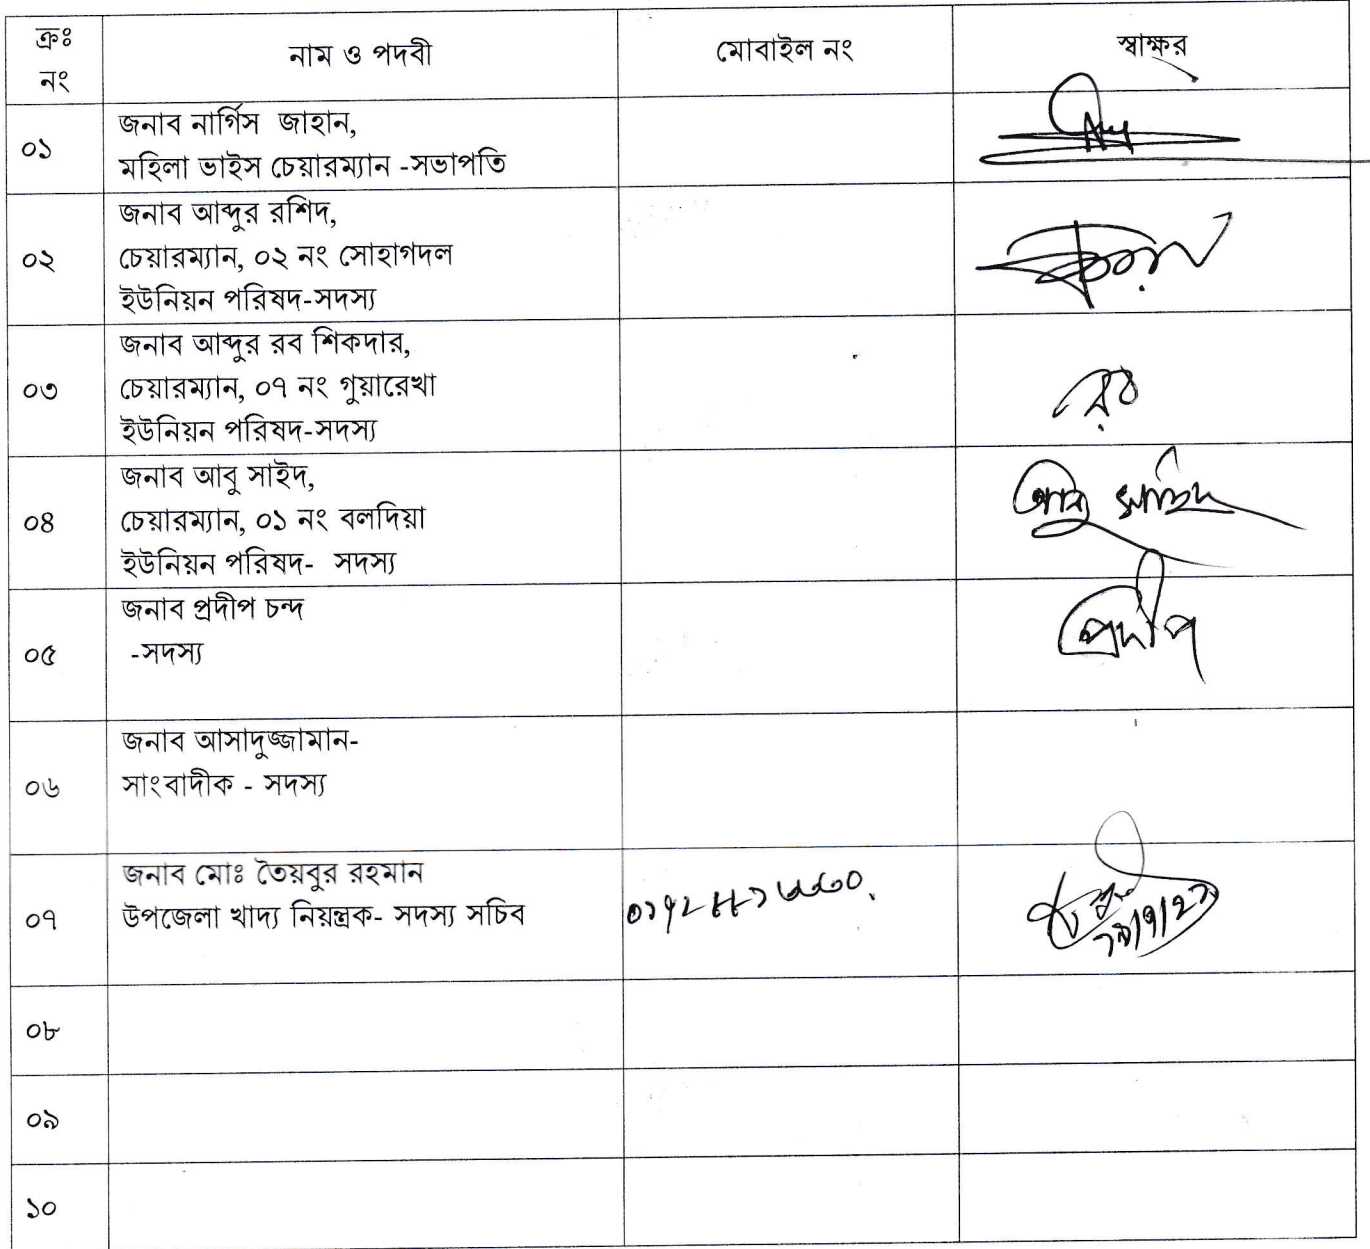 ক্রঃ নং নাম ও পদবী মোবাইল নং স্বাক্ষর
০১ জনাব নার্গিস জাহান,
মহিলা ভাইস চেয়ারম্যান -সভাপতি
০২ জনাব আব্দুর রশিদ,
চেয়ারম্যান, ০২ নং সোহাগদল
ইউনিয়ন পরিষদ-সদস্য
০৩ জনাব আব্দুর রব শিকদার,
চেয়ারম্যান, ০৭ নং গুয়ারেখা
ইউনিয়ন পরিষদ-সদস্য
রব
০৪ জনাব আবু সাইদ,
চেয়ারম্যান, ০১ নং বলদিয়া
ইউনিয়ন পরিষদ- সদস্য
আবু সাইদ
০৫ জনাব প্রদীপ চন্দ
-সদস্য
প্রদীপ
০৬ জনাব আসাদুজ্জামান-
সাংবাদীক - সদস্য
০৭ জনাব মোঃ তৈয়বুর রহমান
উপজেলা খাদ্য নিয়ন্ত্রক- সদস্য সচিব
০৮
০৯
১০